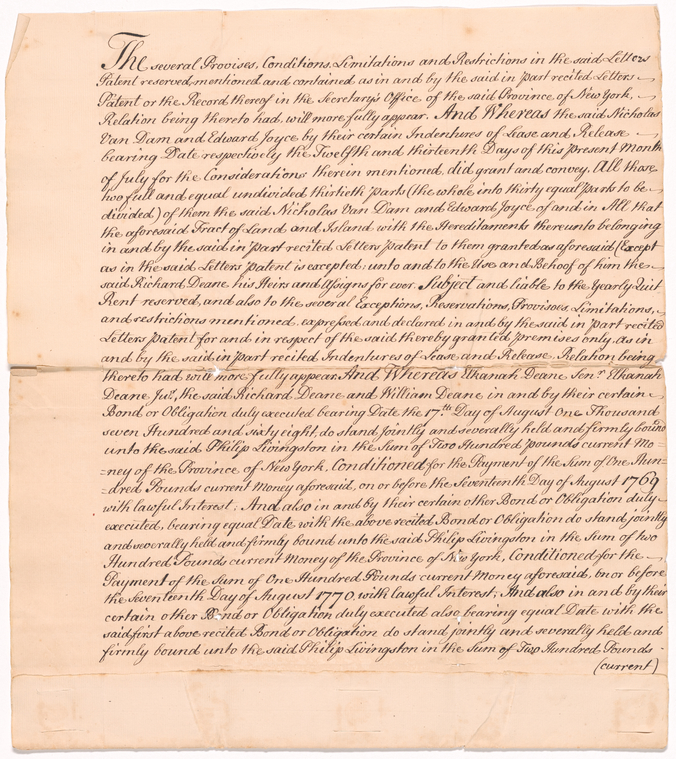 The several Provises, Conditions, Limitations and Restrictions in the said Letters
Patent reserved, mentioned and contained as in and by the said in part recited Letters
Patent or the Record thereof in the Secretary's Office of the said Province of New York,
Relation being thereto had, will more fully appear. And Whereas the said Nicholas
Van Dam and Edward Joyce by their certain Indentures of Lease and Release
bearing Date respectively the Twelfth and thirteenth Days of this present Month
of July for the Considerations therein mentioned, did grant and convey, All those
two full and equal undivided thirtieth parts (the whole into thirty equal Parts to be
divided) of them the said Nicholas Van Dam and Edward Joyce of and in All that
the aforesaid Tract of Land and Island with the Hereditaments thereunto belonging
in and by the said in part recited Letters patent to them granted as aforesaid (Except
as in the said Letters patent is excepted, unto and to the Use and Behoof of him the
said Richard Deane, his Heirs and Assigns for ever Subject and liable to the Yearly Quit
Rent reserved, and also to the several Exceptions, Reservations, Provisoes, Limitations,
and restrictions mentioned, expressed and declared in and by the said in part recited
Letters patent for and in respect of the said thereby granted premises only, as in
and by the said in part recited Indentures of Lease and Release, Relation being
thereto had will more fully appear. And Whereas Elkanah Deane Senr. Elkanah
Deane Junr. the said Richard Deane and William Deane in and by their certain
Bond or Obligation duly executed bearing Date the 17th Day of August One Thousand
seven Hundred and sixty eight, do stand jointly and severally held and firmly bound
unto the said Philip Livingston in the Sum of Two Hundred pounds current Mo=
=ney of the Province of New York, Conditioned for the Payment of the Sum of One Hun=
=dred Pounds current Money aforesaid, on or before the Seventeenth Day of August 1769
with lawful Interest; And also in and by their certain other Bond or Obligation duly
executed, bearing equal Date with the above recited Bond or Obligation do stand jointly
and severally held and firmly bound unto the said Philip Livingston in the Sum of two
Hundred Pounds current Money of the Province of New York, Conditioned for the
Payment of the Sum of One Hundred Pounds current Money aforesaid, on or before
the Seventeenth Day of August 1770, with lawful Interest; And also in and by their
certain other Bond or Obligation duly executed also bearing equal Date with the
said first above recited Bond or Obligation, do stand jointly and severally held and
firmly bound unto the said Philip Livingston in the Sum of Two Hundred Pounds
(current)